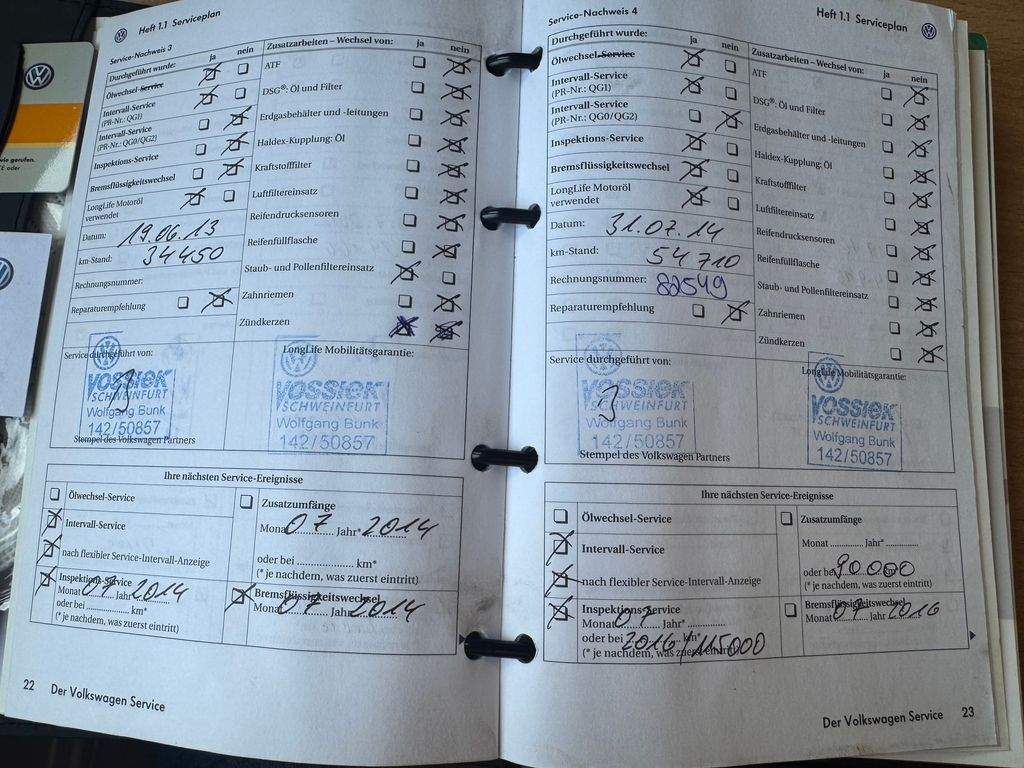 Heft 1.1 Serviceplan
Service-Nachweis 3
Durchgeführt wurde: ja nein
Ölwechsel-Service
Intervall-Service
(PR-Nr.: QG1)
Intervall-Service
(PR-Nr.: QG0/QG2)
Inspektions-Service
Bremsflüssigkeitswechsel
LongLife Motoröl
verwendet
Datum: 19.06.13
km-Stand: 34450
Rechnungsnummer:
Reparaturempfehlung
Zusatzarbeiten – Wechsel von: ja nein
ATF
DSG®: Öl und Filter
Erdgasbehälter und -leitungen
Haldex-Kupplung: Öl
Kraftstofffilter
Luftfiltereinsatz
Reifendrucksensoren
Reifenfüllflasche
Staub- und Pollenfiltereinsatz
Zahnriemen
Zündkerzen
Service durchgeführt von:
VOSSIEK
SCHWEINFURT
Wolfgang Bunk
142/50857
Stempel des Volkswagen Partners
LongLife Mobilitätsgarantie:
VOSSIEK
SCHWEINFURT
Wolfgang Bunk
142/50857
Ihre nächsten Service-Ereignisse
Ölwechsel-Service
Intervall-Service
nach flexibler Service-Intervall-Anzeige
Inspektions-Service
Monat 07 Jahr* 2014
oder bei .................. km*
(* je nachdem, was zuerst eintritt)
Zusatzumfänge
Monat 07 Jahr* 2014
oder bei .................. km*
(* je nachdem, was zuerst eintritt)
Bremsflüssigkeitswechsel
Monat 07 Jahr 2014
22 Der Volkswagen Service
Service-Nachweis 4
Heft 1.1 Serviceplan
Durchgeführt wurde: ja nein
Ölwechsel-Service
Intervall-Service
(PR-Nr.: QG1)
Intervall-Service
(PR-Nr.: QG0/QG2)
Inspektions-Service
Bremsflüssigkeitswechsel
LongLife Motoröl
verwendet
Datum: 31.07.14
km-Stand: 54710
Rechnungsnummer: 82549
Reparaturempfehlung
Zusatzarbeiten – Wechsel von: ja nein
ATF
DSG®: Öl und Filter
Erdgasbehälter und -leitungen
Haldex-Kupplung: Öl
Kraftstofffilter
Luftfiltereinsatz
Reifendrucksensoren
Reifenfüllflasche
Staub- und Pollenfiltereinsatz
Zahnriemen
Zündkerzen
Service durchgeführt von:
VOSSIEK
SCHWEINFURT
Wolfgang Bunk
142/50857
Stempel des Volkswagen Partners
LongLife Mobilitätsgarantie:
VOSSIEK
SCHWEINFURT
Wolfgang Bunk
142/50857
Ihre nächsten Service-Ereignisse
Ölwechsel-Service
Intervall-Service
nach flexibler Service-Intervall-Anzeige
Inspektions-Service
Monat 07 Jahr* ..................
oder bei 2016/115000 km*
(* je nachdem, was zuerst eintritt)
Zusatzumfänge
Monat ............... Jahr* ...............
oder bei 90000
(* je nachdem, was zuerst eintritt)
Bremsflüssigkeitswechsel
Monat 07 Jahr 2016
Der Volkswagen Service 23